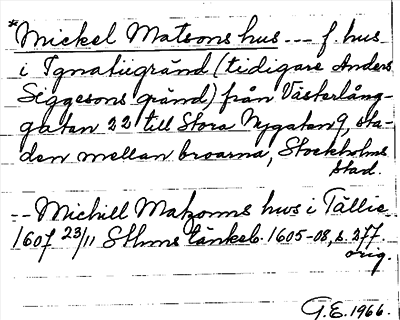 *Mickel Matsons hus --- f. hus
i Ignatiigränd (tidigare Anders
Siggesons gränd) från Västerlång-
gatan 22 till Stora Nygatan 9, sta-
den mellan broarna, Stockholms
stad.
-- Michill Matzonns hws i Tällie
1607 23/11 Sthms tänkeb. 1605-08, s. 277.
orig.
G.E. 1966.